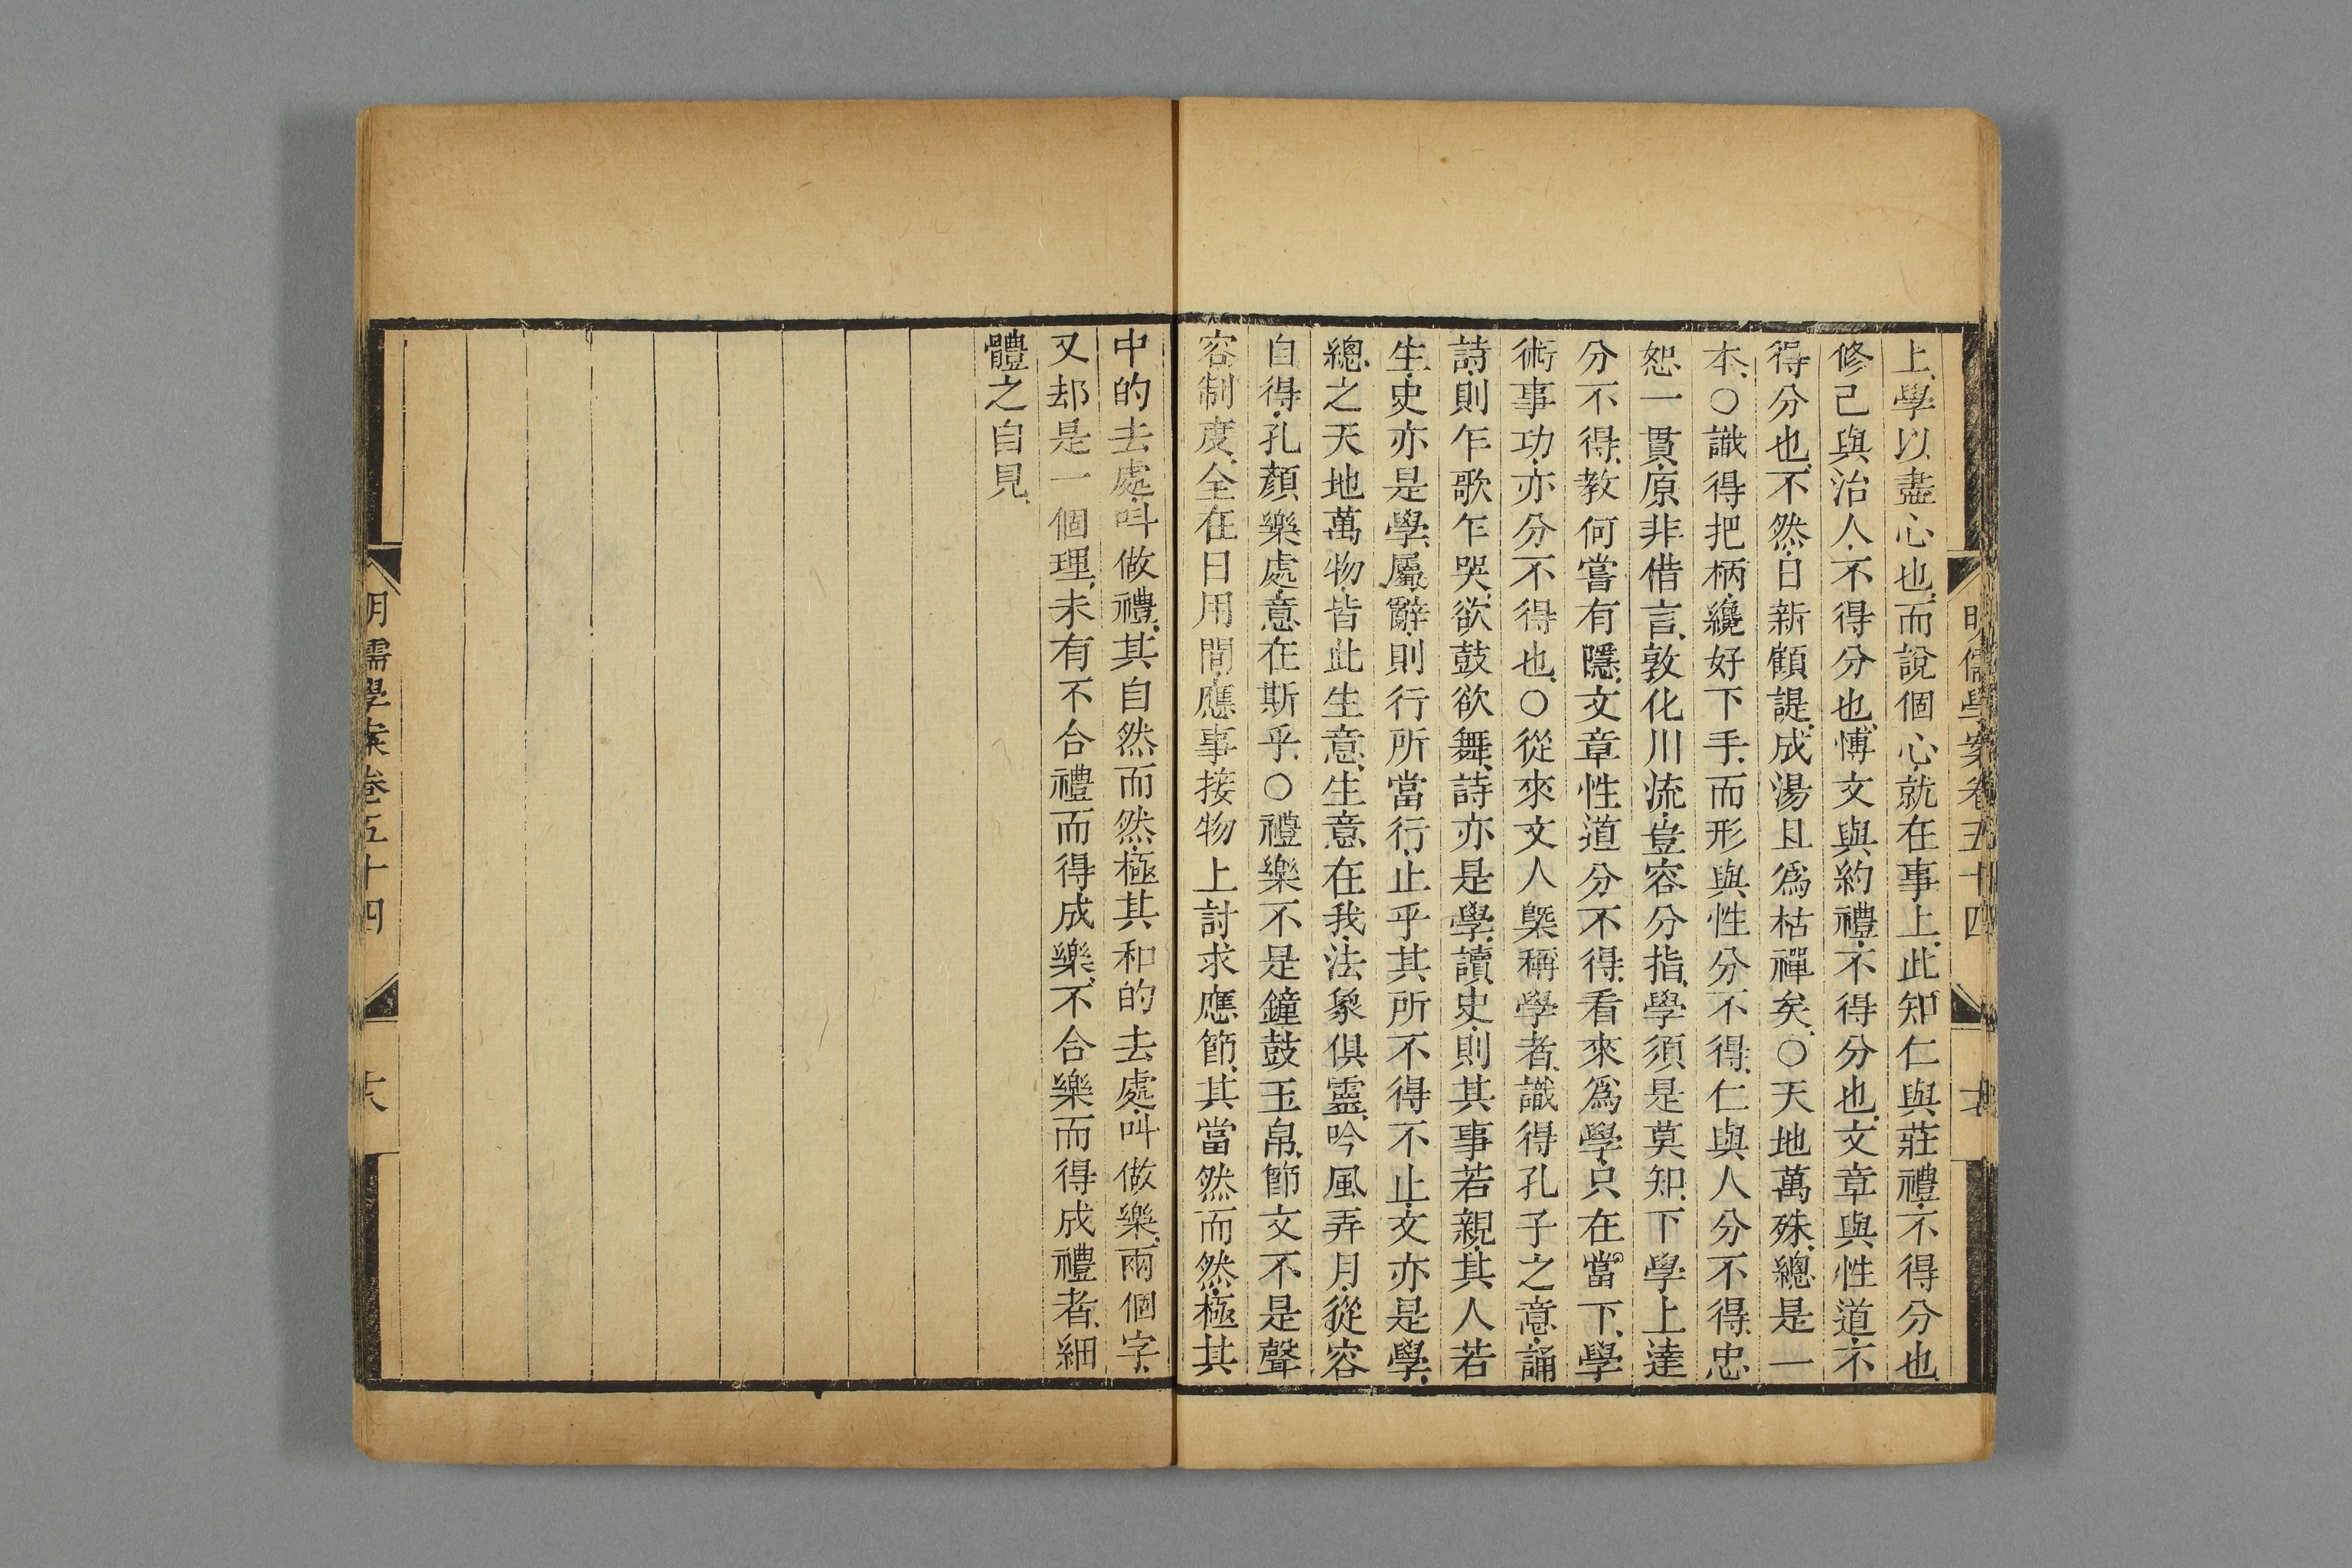 明儒學案卷五十四
上、學以盡心也、而說個心、就在事上、此知仁與莊禮、不得分也
修己與治人、不得分也、博文與約禮、不得分也、文章與性道、不
得分也、不然、日新顧諟、成湯且爲枯禪矣、○天地萬殊、總是一
本、○識得把柄、纔好下手、而形與性分不得、仁與人分不得、忠
恕一貫、原非借言、敦化川流、豈容分指、學須是莫知、下學上達
分不得、教何嘗有隱、文章性道分不得、看來爲學、只在當下、學
術事功、亦分不得也、○從來文人槩稱學者、識得孔子之意、誦
詩、則乍歌乍哭、欲鼓欲舞、詩亦是學、讀史、則其事若親、其人若
生、史亦是學、屬辭、則行所當行、止乎其所不得不止、文亦是學、
總之天地萬物、皆此生意、生意在我、法象俱靈、吟風弄月、從容
自得、孔顏樂處、意在斯乎、○禮樂不是鐘鼓玉帛、節文不是聲
容制度、全在日用間、應事接物上討求應節、其當然而然、極其
中的去處、呌做禮、其自然而然、極其和的去處、叫做樂、兩個字、
又却是一個理、未有不合禮而得成樂、不合樂而得成禮者、細
體之自見、
明儒學案卷五十四